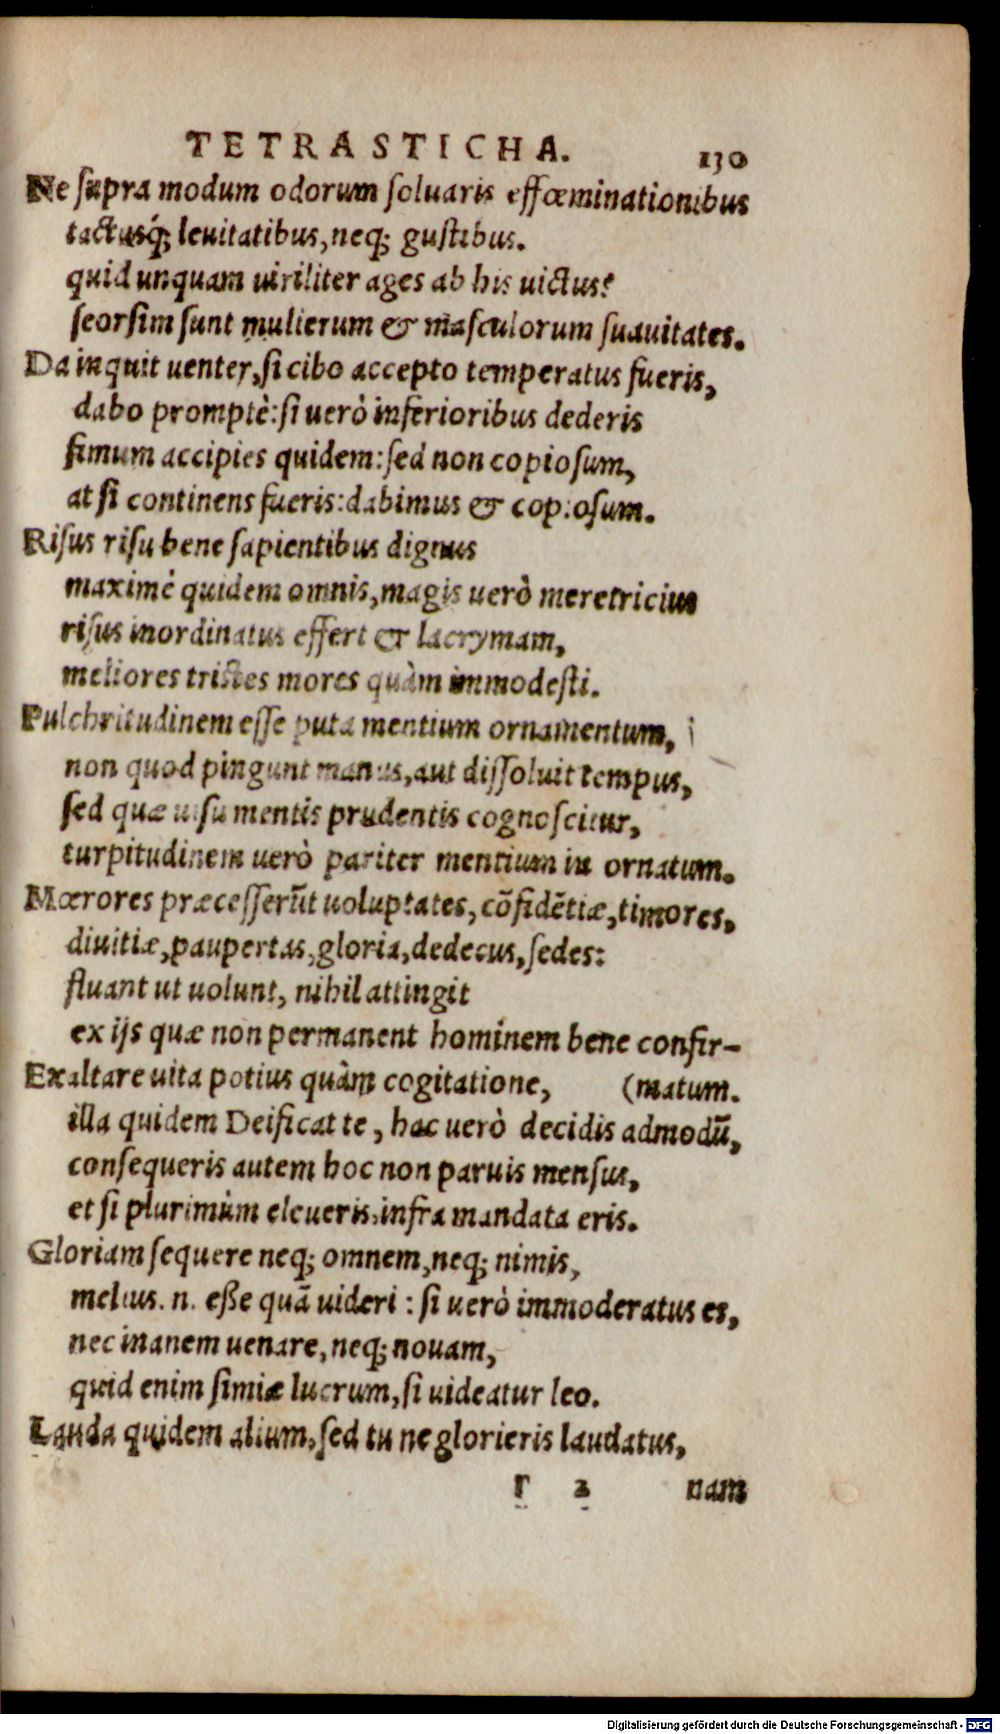 TETRASTICHA. 130
Ne supra modum odorum soluaris effœminationibus
tactusq́; leuitatibus, neq; gustibus.
quid unquam uiriliter ages ab his uictus?
seorsim sunt mulierum & masculorum suauitates.
Da inquit uenter, si cibo accepto temperatus fueris,
dabo promptè: si uerò inferioribus dederis
fimum accipies quidem: sed non copiosum,
at si continens fueris: dabimus & copiosum.
Risus risu bene sapientibus dignus
maximè quidem omnis, magis uerò meretricius
risus inordinatus effert & lacrymam,
meliores tristes mores quàm immodesti.
Pulchritudinem esse puta mentium ornamentum,
non quod pingunt manus, aut dissoluit tempus,
sed quæ uisu mentis prudentis cognoscitur,
turpitudinem uerò pariter mentium in ornatum.
Mœrores præcesserũt uoluptates, cõfidẽtiæ, timores,
diuitiæ, paupertas, gloria, dedecus, sedes:
fluant ut uolunt, nihil attingit
ex ijs quæ non permanent hominem bene confir-
Exaltare uita potius quàm cogitatione, (matum.
illa quidem Deificat te, hac uerò decidis admodũ,
consequeris autem hoc non paruis mensus,
et si plurimùm eleueris, infra mandata eris.
Gloriam sequere neq; omnem, neq; nimis,
melius. n. eße quã uideri: si uerò immoderatus es,
nec inanem uenare, neq; nouam,
quid enim simiæ lucrum, si uideatur leo.
Lauda quidem alium, sed tu ne glorieris laudatus,
r 2 nam
Digitalisierung gefördert durch die Deutsche Forschungsgemeinschaft - DFG